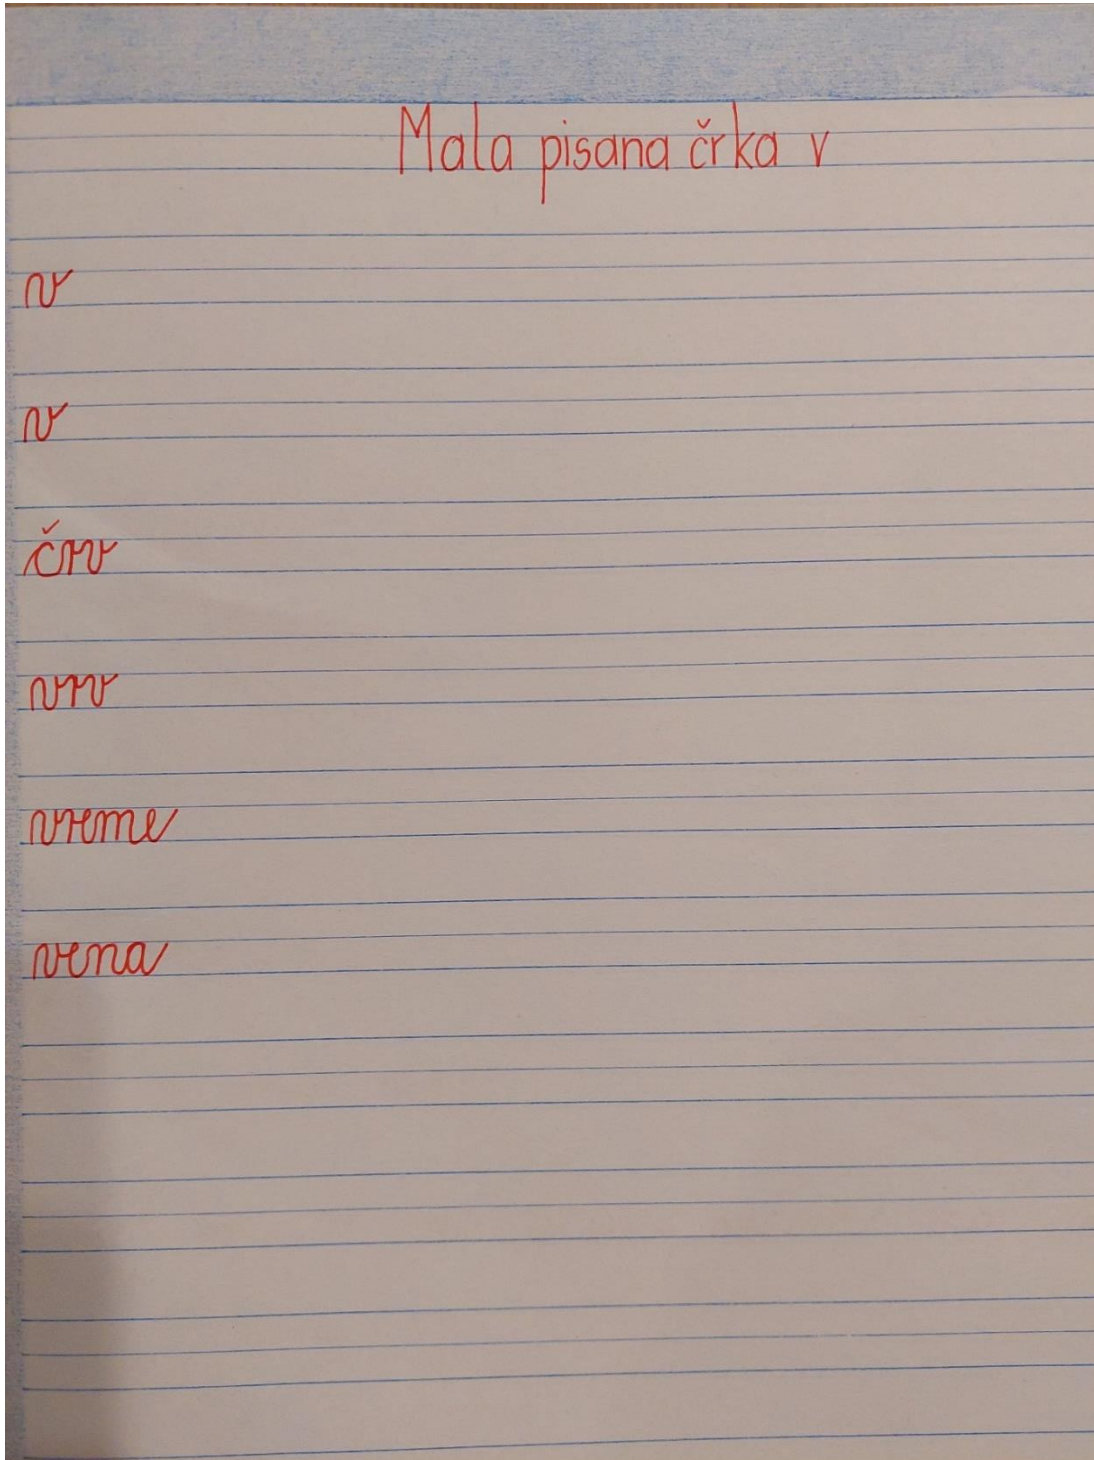 Mala pisana črka v
v
v
črv
vrv
vreme
vena